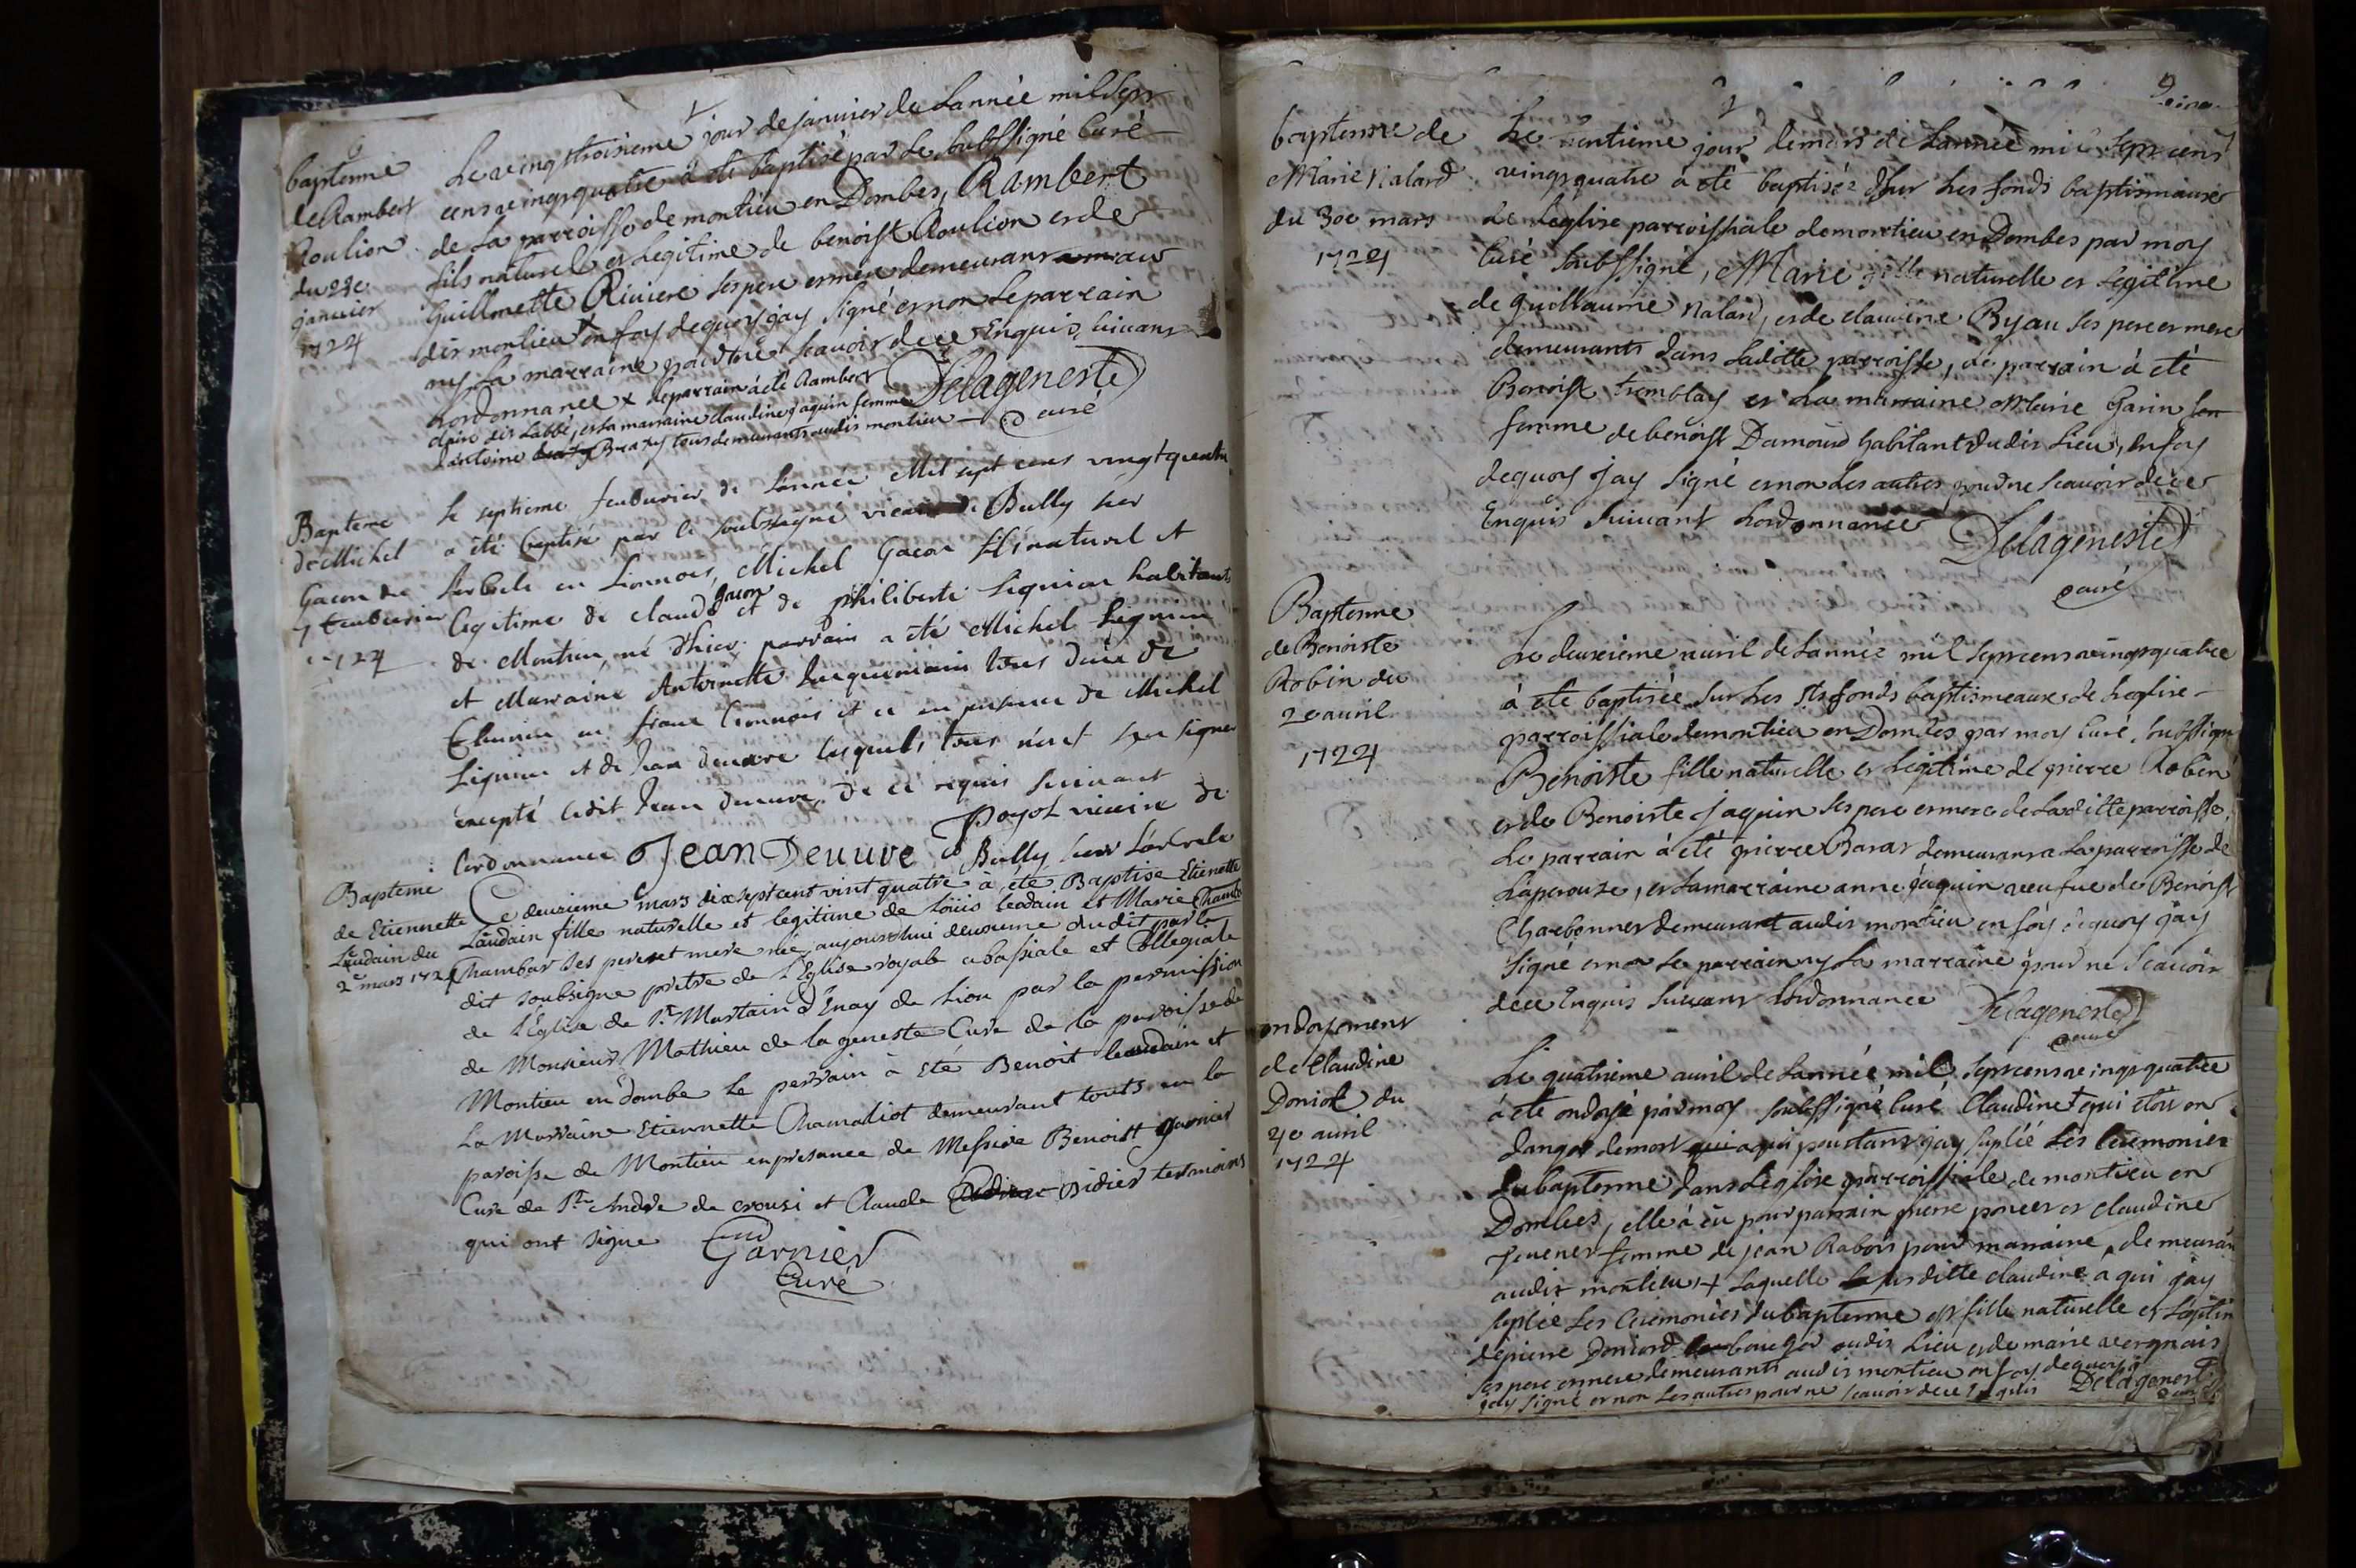 baptesme
de Rambert
Roulion
du 23e
janvier
1724
Le vingt troisieme jour de janvier de Lannée mil sept
cens vingt quatre a été baptisé par Le subssigné Curé
de La parroisse de montieu en Dombes, Rambert
fils naturel et Legitime de benoist Roulion et de
Guillmette Riviere ses pere et mere demeurans au
dit montieu en foy dequoy jay signé et non Le parrain
ny La marraine pour ne scavoir de ce Enquis suivant
Lordonnance x Le parrain à été Rambert
dit Labbé, et sa marraine claudine jaquin femme
d'antoine Buaty tous demeurants audit montieu
Delageneste
curé
Bapteme
de Michel
Gacon du
7 feubvrier
1724
Le septieme feubvrier de Lannée Mil sept cens vingt quatre
a été baptisé par le soubsigné vicaire de Bully sur
Larbrele en Lionnois, Michel Gacon fils naturel et
legitime de claude gacon et de philiberte Liqnieu habitants
de Montieu, né d'hier parrain a été Michel Liqnieu
et Marraine Antoinette Jacquemain tous deux de
en franc Lionnois et ce en presence de Michel
Liqnieu et de Jean deuuvre lesquels tous n'ont sceu signer
excepté ledit Jean deuuvre de ce requis suivant
Lordonnance Jean Deuuve Poyot vicaire de
Bully sur Larbrele
Bapteme
de Etiennette
Leaudain du
2e mars 1724
Ce deuxieme mars dixsept cent vint quatre à été Baptise Etienette
Laudain fille naturelle et legitime de Loüis leodain et Marie Chamb
Chambar ses pere et mere née aujourdhui deuxieme dudit par le
dit soubsigne pretre de l'Eglise royale abassiale et collegiale
de l'Eglise de St Martain d'Enay de Lion par la permission
de Monsieur Mathieu de la geneste Cure de la paroisse de
Montieu en dombe le parrain à été Benoit leaudain et
La Marraine Etiennette Chamaliot demeurant touts en la
paroisse de Montieu en presance de Messire Benoistt garnier
Cure de St Andre de crousi et Claude Didier temoins
qui ont signe
Garnier
Curé
baptesme de
Marie Nalard
du 30e mars
1724
Le trentieme jour de mars de Lannée mil sept cens
vingt quatre a été baptisée sur Les fonds baptismaux
de Leglise parroissiale de montieu en Dombes par moy
Curé soubssigné, Marie fille naturelle et Legitime
de guillaume Nalard, et de claudine Byau ses pere et mere
demeurants dans Laditte parroisse, Le parrain à été
Benoist tremblay et La marraine Marie Garin
femme de benoist Damour habitant dudit Lieu, En foy
dequoy jay signé et non Les autres pour ne scavoir de ce
Enquis suivant Lordonnance Delageneste
curé
Baptesme
de Benoiste
Robin du
2e avril
1724
Le deuxieme avril de Lannée mil sept cens vingt quatre
à été baptisée sur Les sts fonds baptismeaux de Leglise
parroissiale de montieu en Dombes par moy Curé, soubssigné
Benoiste fille naturelle et Legitime de pierre Robin
et de Benoiste jaquin ses pere et mere de Laditte parroisse,
Le parrain à été pierre Baras demeurans a La parroisse de
Laperouse, et La marraine anne jaquin veufue de Benoist
Charbonner demeurant audit montieu en foy dequoy jay
signé et non Le parrain ny La marraine pour ne scavoir
de ce Enquis suivant Lordonnance Delageneste
curé
ondoyement
de Claudine
Doniol du
4e avril
1724
Le quatrieme avril de Lannée mil sept cens vingt quatre
à été ondoyé par moy soubssigné Curé Claudine qui étoit en
danger de mort a qui pourtant jay suplée Les Ceremonies
du baptesme dans Léglise parroissiale de montieu en
Dombes, elle à eu pour parrain pierre poncet et claudine
femme de jean Rabois pour marraine, demeurants
audit montieu + Laquelle susditte claudine a qui jay
suplée Les Ceremonies du baptesme est fille naturelle et Legitime
de pierre Doniord boucher audit Lieu et de marie vergnais
ses pere et mere demeurants audit montieu en foy dequoy
jay signé et non Les autres pour ne scavoir de ce Enquis Delageneste
curé